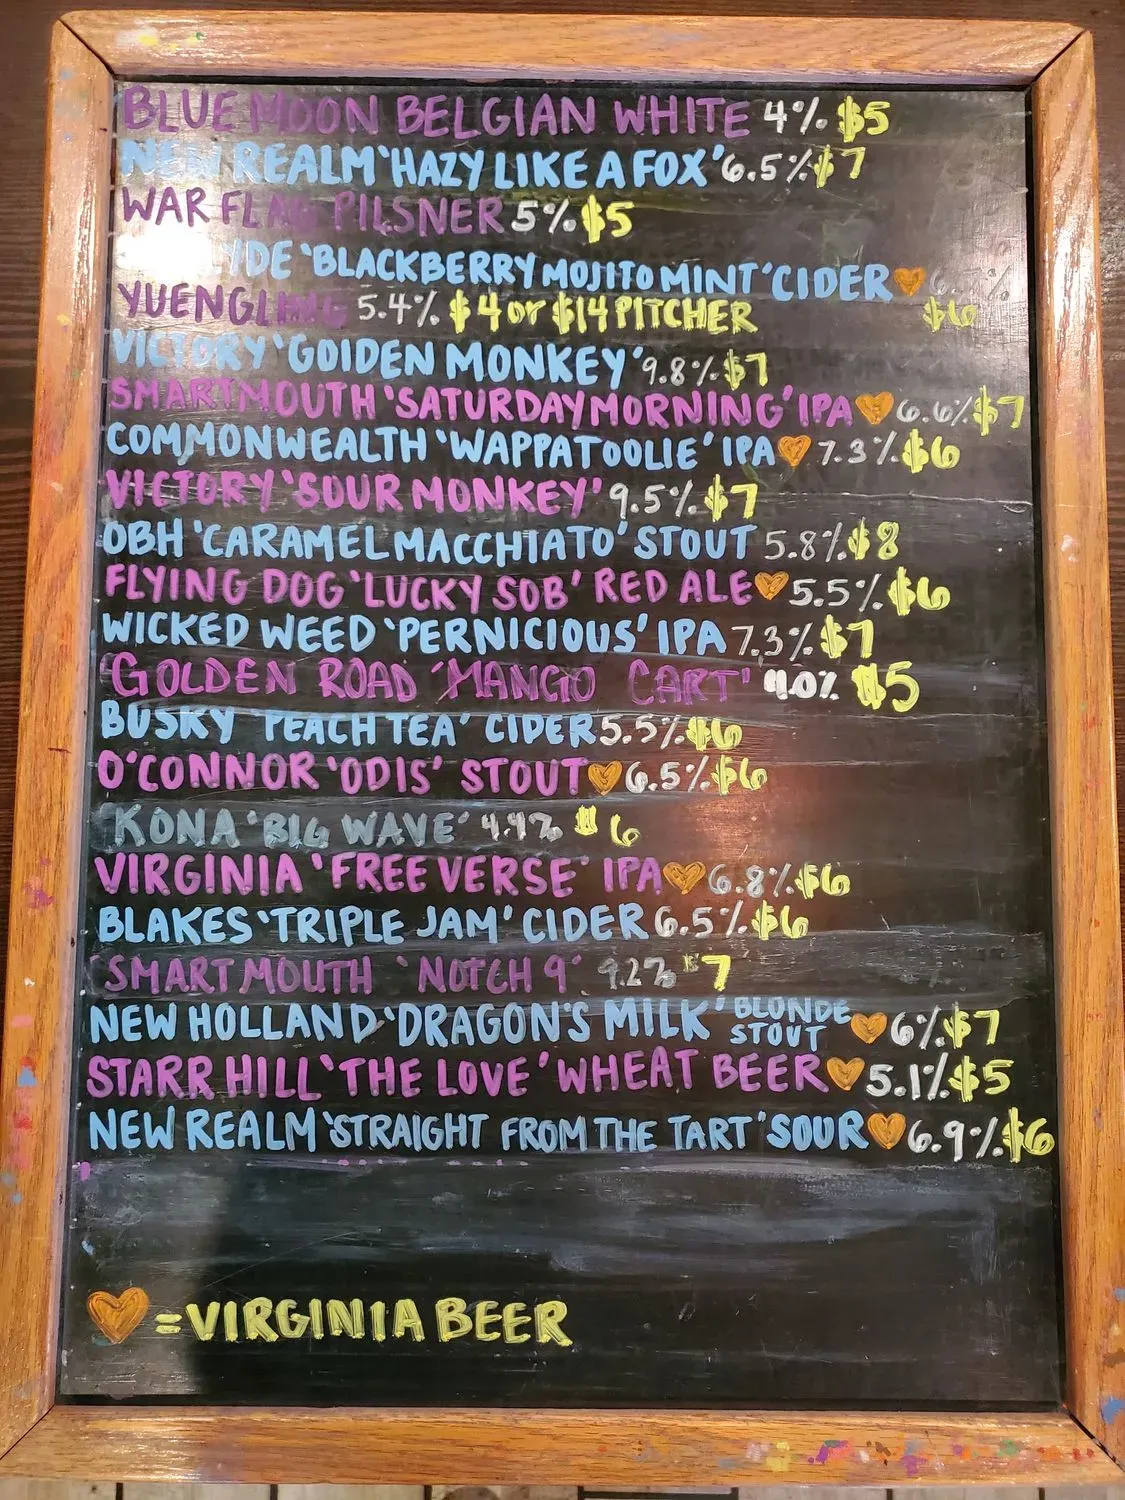 BLUE MOON BELGIAN WHITE 4% $5
NEW REALM 'HAZY LIKE A FOX' 6.5% $7
WAR FLAG PILSNER 5% $5
'BLACKBERRY MOJITO MINT' CIDER 🧡 $6
YUENGLING 5.4% $4 or $14 PITCHER
VICTORY 'GOLDEN MONKEY' 9.8% $7
SMARTMOUTH 'SATURDAY MORNING' IPA 🧡 6.6% $7
COMMONWEALTH 'WAPPATOOLIE' IPA 🧡 7.3% $6
VICTORY 'SOUR MONKEY' 9.5% $7
OBH 'CARAMEL MACCHIATO' STOUT 5.8% $8
FLYING DOG 'LUCKY SOB' RED ALE 🧡 5.5% $6
WICKED WEED 'PERNICIOUS' IPA 7.3% $7
GOLDEN ROAD 'MANGO CART' 4.0% $5
BUSKY 'PEACH TEA' CIDER 5.5% $6
O'CONNOR 'ODIS' STOUT 🧡 6.5% $6
KONA 'BIG WAVE' 4.4% $6
VIRGINIA 'FREE VERSE' IPA 🧡 6.8% $6
BLAKES 'TRIPLE JAM' CIDER 6.5% $6
SMARTMOUTH 'NOTCH 9' 9.2% $7
NEW HOLLAND 'DRAGON'S MILK' BLONDE STOUT 🧡 6% $7
STARR HILL 'THE LOVE' WHEAT BEER 🧡 5.1% $5
NEW REALM 'STRAIGHT FROM THE TART' SOUR 🧡 6.9% $6
🧡 = VIRGINIA BEER